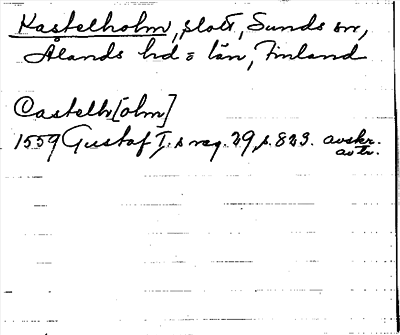 Kastelholm, slott, Sunds sn,
Ålands hd o län, Finland
Castelh[olm]
1559 Gustaf I.s reg. 29, s. 823. avskr.
avtr.